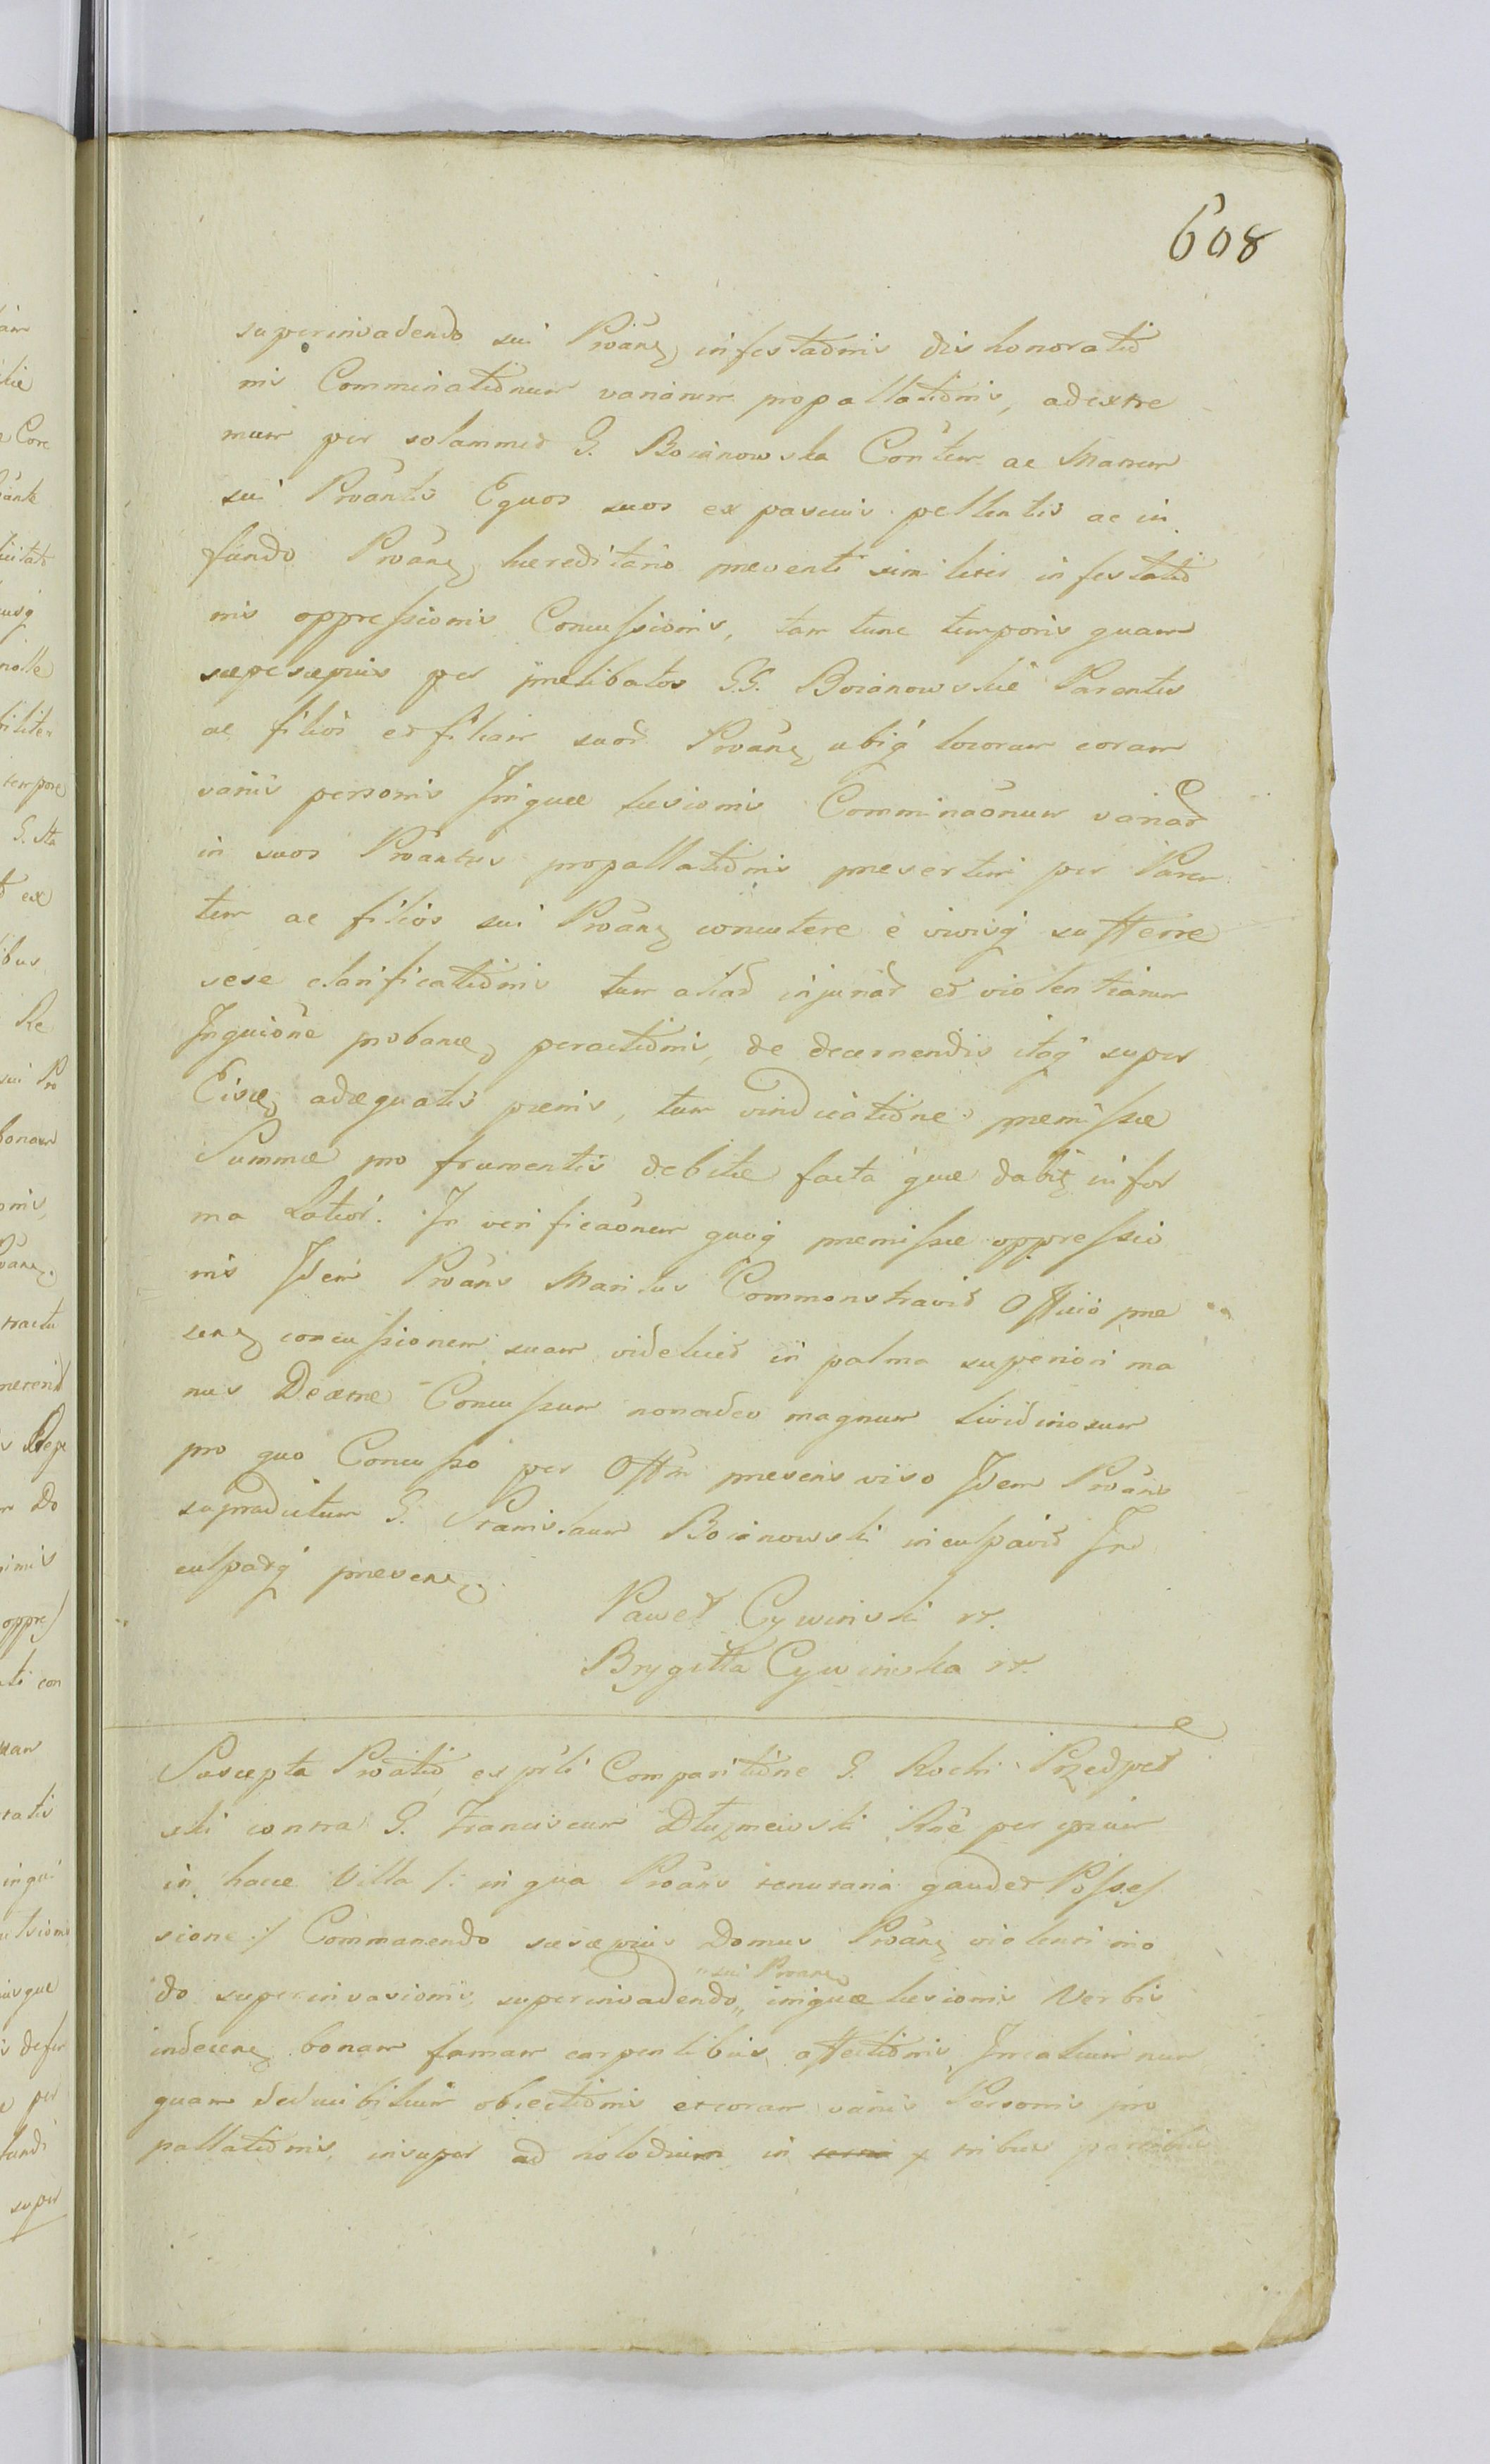 608
superinvadendo sui Proãns infestaõnis dis honoratio
nis Comminationum variarum propallationis, ad extre
mum per solammet G. Boianowska Conten ac Manum
sui Proantis Equos suos ex pascuis pellentis ac in
fundo Proans hæreditario preventi similiter infestatio
nis oppressionis Concussionis, tam tunc temporis quam
sæpesæpius per prælibatos G.G. Boianowskie Parentes
ac filios et filiam suor Proans ubiq locorum coram
variis personis Iniquæ læsionis Comminaõnum variar
in suos Proantes propallationis presertim per Paren
tem ac filios sui Proans concutere e vivisq sufferre
sese clarificationis tum aliar injuriar et violentiarum
Inquiõne probane peractionis, de decernendis itaq super
Eisce adæquatis pænis, tum vindicatione premissæ
Summæ pro frumentis debitæ facta quæ dabit in for
ma Latiori. In verificaõnem quoq premissæ oppressio
nis Idem Proans Maritus Commonstravit Officio præ
sens concussionem suam videlicet in palma superiori ma
nus Dextræ Concussum nonadeo magnum lividinosum
pro quo Concusso per Offm presens viso Idem Proans
supradictum G. Stanislaum Boianowski inculpavit In
culpatq presens.
Paweł Cywinski rr.
Brygitta Cywinska rr.
Suscepta Proatio ex prsli Comparitione G. Rochi Przedpeł
ski contra G. Franciscum Dłuzniewski Rõe per eum
in hacce Villa /: in qua Proans tenutaria gaudet Posses
sione :/ Commanendo sæsæpius Domus Proans violenti mo
do superinvasionis, superinvadendo „ iniquæ læsionis Verbis
„ sui Proans
indecens bonam famam carpentibus affectionis, Inealium nun
quam deducibilium obiectionis et coram variis Personis pro
pallationis, insuper ad in x tribus partibus